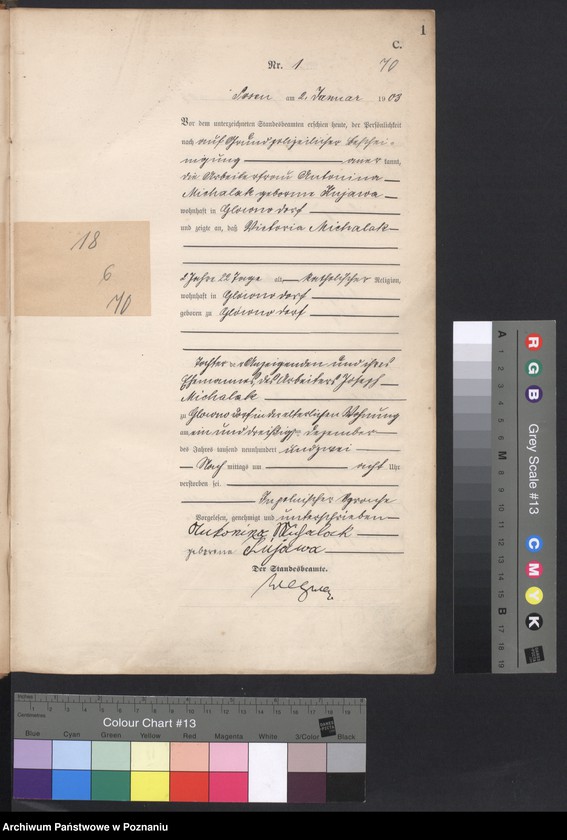 1
C.
Nr. 1 70
Posen am 2. Januar 1903
Vor dem unterzeichneten Standesbeamten erschien heute, der Persönlichkeit
nach auf Grund polizeilicher Beschei-
nigung aner kannt,
die Arbeiterfrau Antonina
Michalak geborene Kujawa
wohnhaft in Glowno Dorf
und zeigte an, daß Victoria Michalak
2 Jahre 22 Tage alt, katholischer Religion,
wohnhaft in Glowno Dorf
geboren zu Glowno Dorf
Tochter der Anzeigenden und ihres
Ehemannes, des Arbeiters Joseph
Michalak
zu Glowno Dorf in der elterlichen Wohnung
am ein und dreißigsten Dezember
des Jahres tausend neunhundert und zwei
Nach mittags um acht Uhr
verstorben sei.
In polnischer Sprache
Vorgelesen, genehmigt und unterschrieben
Antonina Michalack
geborene Kujawa
Der Standesbeamte.
18
6
70
Grey Scale #13
R G B C M Y K
A 1 2 3 4 5 6 M 8 9 10 11 12 13 14 15 B 17 18 19
Inches 1 2 3 4 5 6 7 8
Centimetres 1 2 3 4 5 6 7 8 9 10 11 12 13 14 15 16 17 18 19
Colour Chart #13
Blue Cyan Green Yellow Red Magenta White 3/Color Black
Archiwum Państwowe w Poznaniu